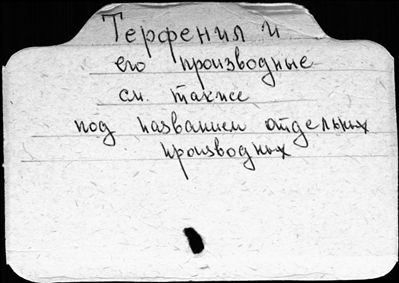 Терфенил и
его производные
см. также
под названием отдельных
производных